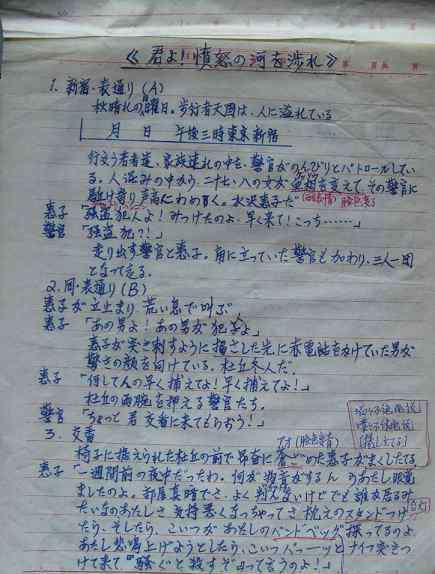 《君よ!憤怒の河を渉れ》
1. 新宿・表通り(A)
秋晴れの日曜日。歩行者天国は、人に溢れている
月 日 午後三時東京新宿
行交う若者達、家族連れの中を、警官がのんびりとパトロールしてい
る。人混みの中から、二十七、八の女が血相を変えて、その警官に
駈け寄り声高にわめく。水沢恵子だ
恵子「強盗犯人よ!みつけたのよ。早く来て!こっち……」
警官「強盗犯?!」
走り出す警官と恵子。角に立っていた警官も加わり、三人一団
となって走る。
2. 同・表通り(B)
恵子が立止まり 荒い息で叫ぶ
恵子「あの男よ!あの男が犯人よ」
恵子が突き刺すように指さした先に赤電話をかけていた男が
驚きの顔を向けている。杜丘冬人だ。
恵子「何してんの早く捕えてよ!早く捕えて!」
杜丘の両腕を押える警官たち。
警官「ちょっと君 交番に来てもらおう!」
3. 交番
椅子に据えられた杜丘の前で昂奮に蒼ざめた恵子がまくしたてる
恵子「一週間前の夜中だったわ。何か物音がするん のあたし眼覚
ましたのよ。部屋真暗でさ、よく判んないけどでも誰か居るみ
たいなのあたしさ 気持悪くなっちゃってさ 枕元のスタンドつけ
たら、そしたら、こいつがあたしのハンドバッグ探ってるのよ
あたし悲鳴上げようとしたら、こいつパッーッとナイフ突きつ
けて来て『騒ぐと殺すぞ』って言うのよ!」